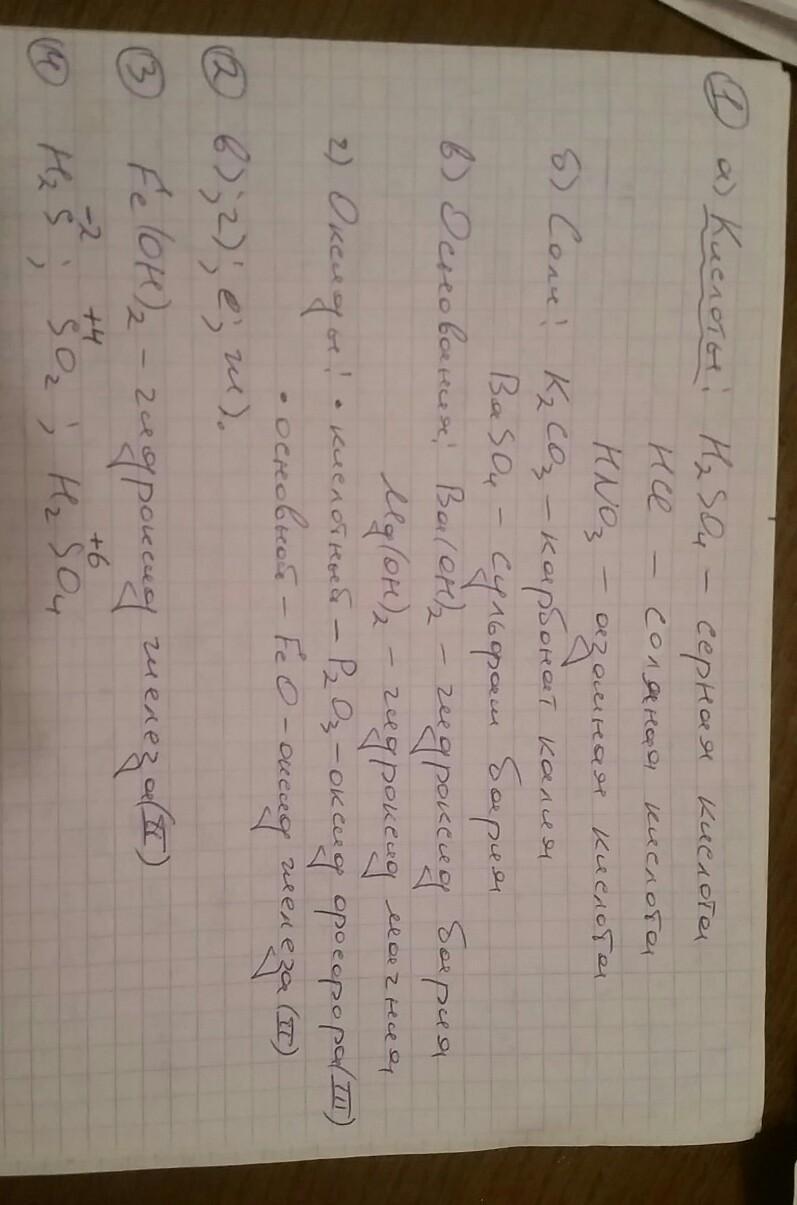 ① а) Кислоты: H₂SO₄ – серная кислота
HCl – соляная кислота
HNO₃ – азотная кислота
б) Соли: K₂CO₃ – карбонат калия
BaSO₄ – сульфат бария
в) Основания: Ba(OH)₂ – гидроксид бария
Mg(OH)₂ – гидроксид магния
г) Оксиды: • кислотный – P₂O₃ – оксид фосфора (III)
• основный – FeO – оксид железа (II)
② в); г); е; ж).
③ Fe(OH)₂ – гидроксид железа (II)
④ H₂S⁻²; S⁺⁴O₂; H₂S⁺⁶O₄